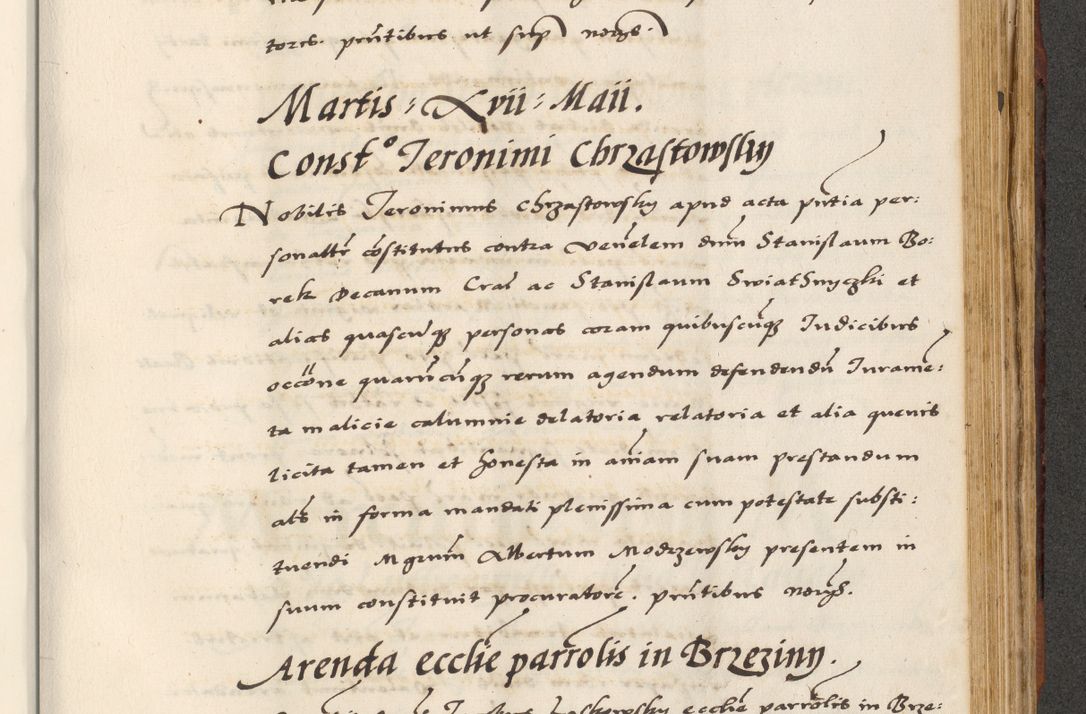 tores. pr̃ntibus ut sup̃ notȝs.
Martis : Xvii : Maii.
Const.º Ieronimi Chrząstowsky
Nobilis Ieronimus Chrząstowsky apud acta pñtia per:
sonalr̃ cõstitutus contra Venẽlem dnũm Stanislaum Bo:
rek Decanum Craẽ ac Stanislaum SwiatSnyczki et
alias quascũqȝ personas coram quibuscũqȝ Iudicibus
occõne quarũcũqȝ rerum agendum defendendũ Iurame:
ta malicie calumnie delatoria relatoria et alia quevis
licita tamen et honesta in aĩam suam prestandum
als in forma mandati plenissima cum potestate substi:
tuendi Mgrum Albertum Modrzewsky presentem in
suum constituit procuratorẽ. pr̃ntibus notȝs.
Arenda ecclie parrolis in Brzeziny.
ecclie parrolis in Brze: